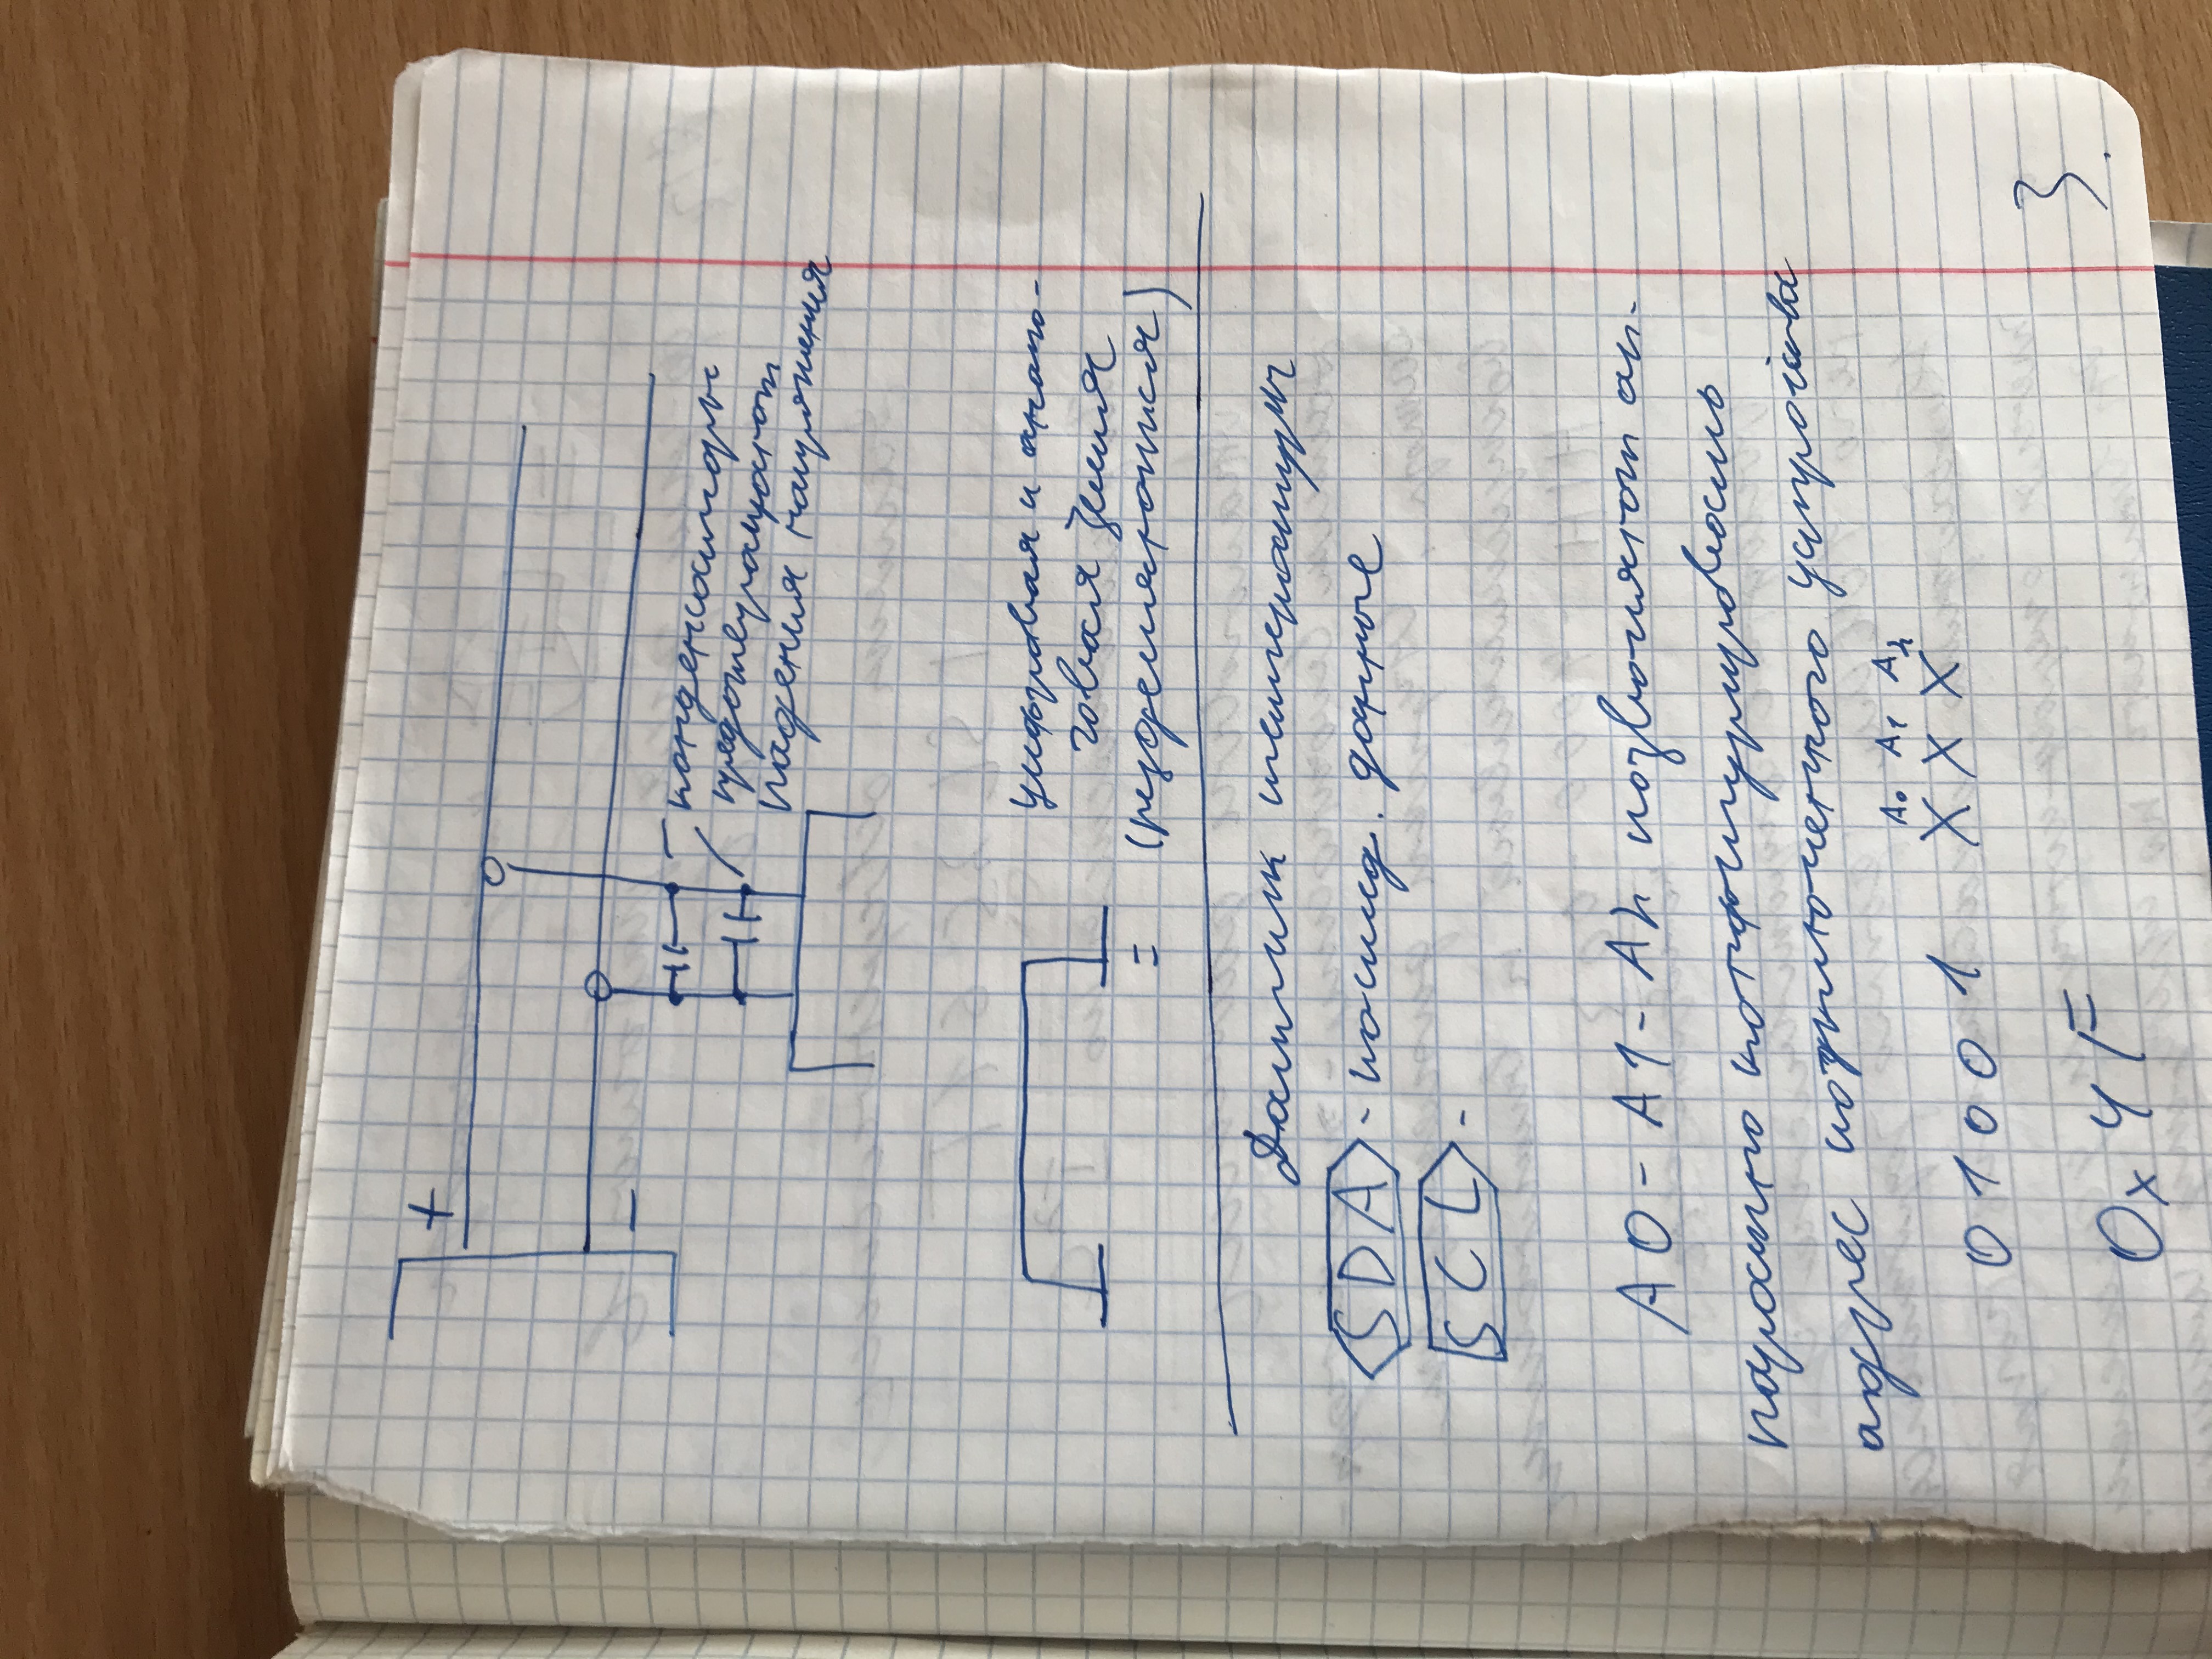 +
−
конденсаторы
предотвращают
падения напряжения
цифровая и анало-
говая земля
(разделяются)
=
Датчик температуры
SDA - послед. данные
SCL -
A0 - A1 - A2 позволяют ап-
паратно конфигурировать
адрес подключенного устройства
A0 A1 A2
01001 X X X
0x4F
3.